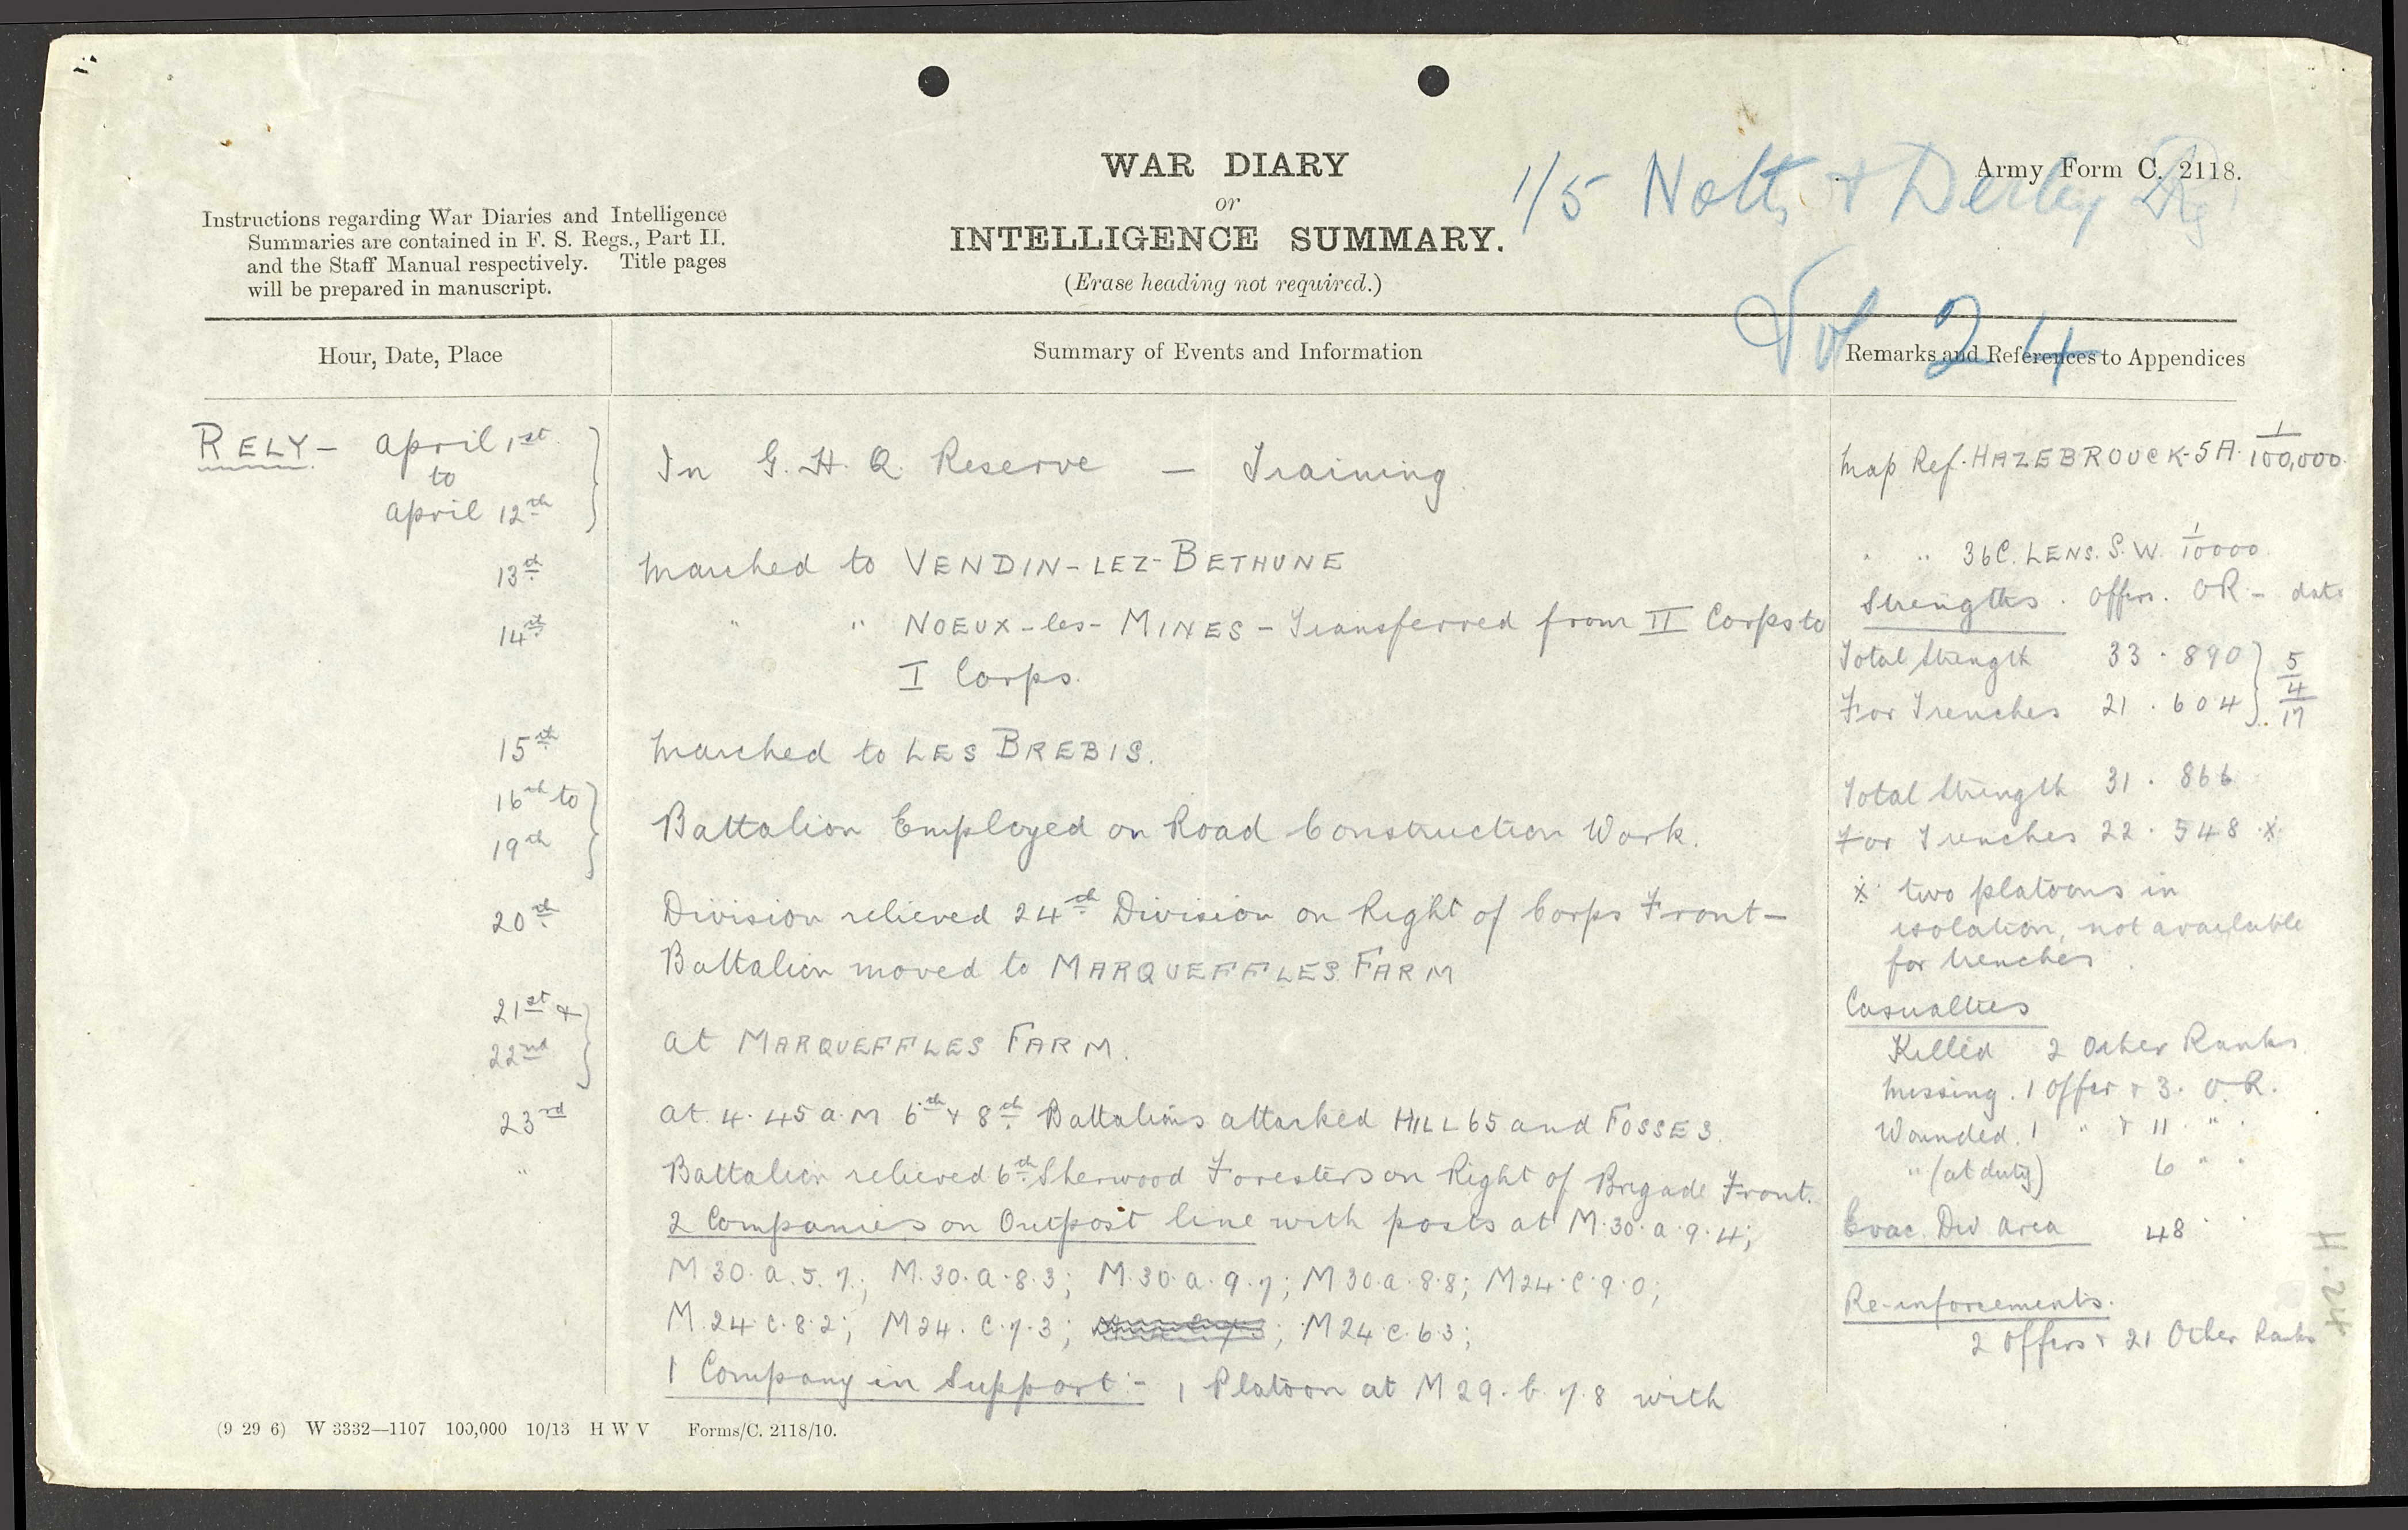 WAR DIARY
or
INTELLIGENCE SUMMARY.
(Erase heading not required.)
1/5 Notts & Derby Rg
Army Form C. 2118.
Vol 24
Instructions regarding War Diaries and Intelligence
Summaries are contained in F. S. Regs., Part II.
and the Staff Manual respectively. Title pages
will be prepared in manuscript.
Hour, Date, Place
Summary of Events and Information
Remarks and References to Appendices
RELY - April 1st
to
April 12th
In G. H. Q. Reserve — Training.
13th
Marched to VENDIN-LEZ-BETHUNE
14th
" " NOEUX-les-MINES - Transferred from II Corps to
I Corps.
15th
Marched to LES BREBIS.
16th to
19th
Battalion Employed on Road Construction Work.
20th
Division relieved 24th Division on Right of Corps Front -
Battalion moved to MARQUEFFLES FARM
21st &
22nd
At MARQUEFFLES FARM.
23rd
At 4.45 a.m 6th & 8th Battalions attacked HILL 65 and FOSSE 3.
"
Battalion relieved 6th Sherwood Foresters on Right of Brigade Front.
2 Companies on Outpost line with posts at M.30.a.9.4;
M 30.a.5.7.; M.30.a.8.3; M.30.a.9.7; M30.a.8.8; M24.c.9.0;
M.24.c.8.2; M24.c.7.3; ; M24c.6.3;
1 Company in Support :- 1 Platoon at M29.b.7.8 with
Map Ref. HAZEBROUCK-5A. 1/100,000.
" " 36C. LENS. S.W. 1/10000
Strengths. Offrs. OR - date
Total Strength 33 . 890 } 5/4/17
For Trenches 21 . 604 }
Total Strength 31 . 866
For Trenches 22 . 548 .x.
x. two platoons in
isolation, not available
for trenches.
Casualties
Killed 2 Other Ranks
Missing. 1 Offcr & 3. O.R.
Wounded. 1 " & 11 " .
" (at duty) 6 " "
Evac. Div area 48 " "
Re-inforcements.
2 Offrs & 21 Other Ranks
H. 24
(9 29 6) W 3332—1107 100,000 10/13 H W V Forms/C. 2118/10.